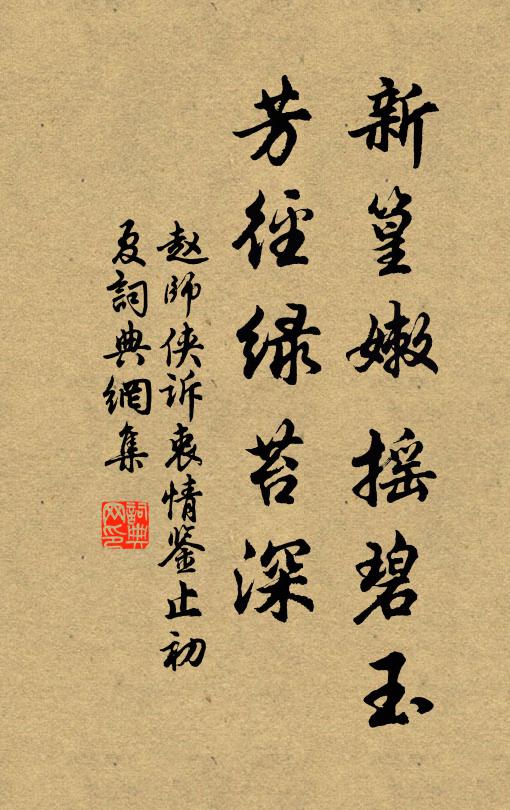 新篁嫩摇碧玉
芳径绿苔深
赵师侠诉衷情鉴止初
夏词典网集
詞典
网印